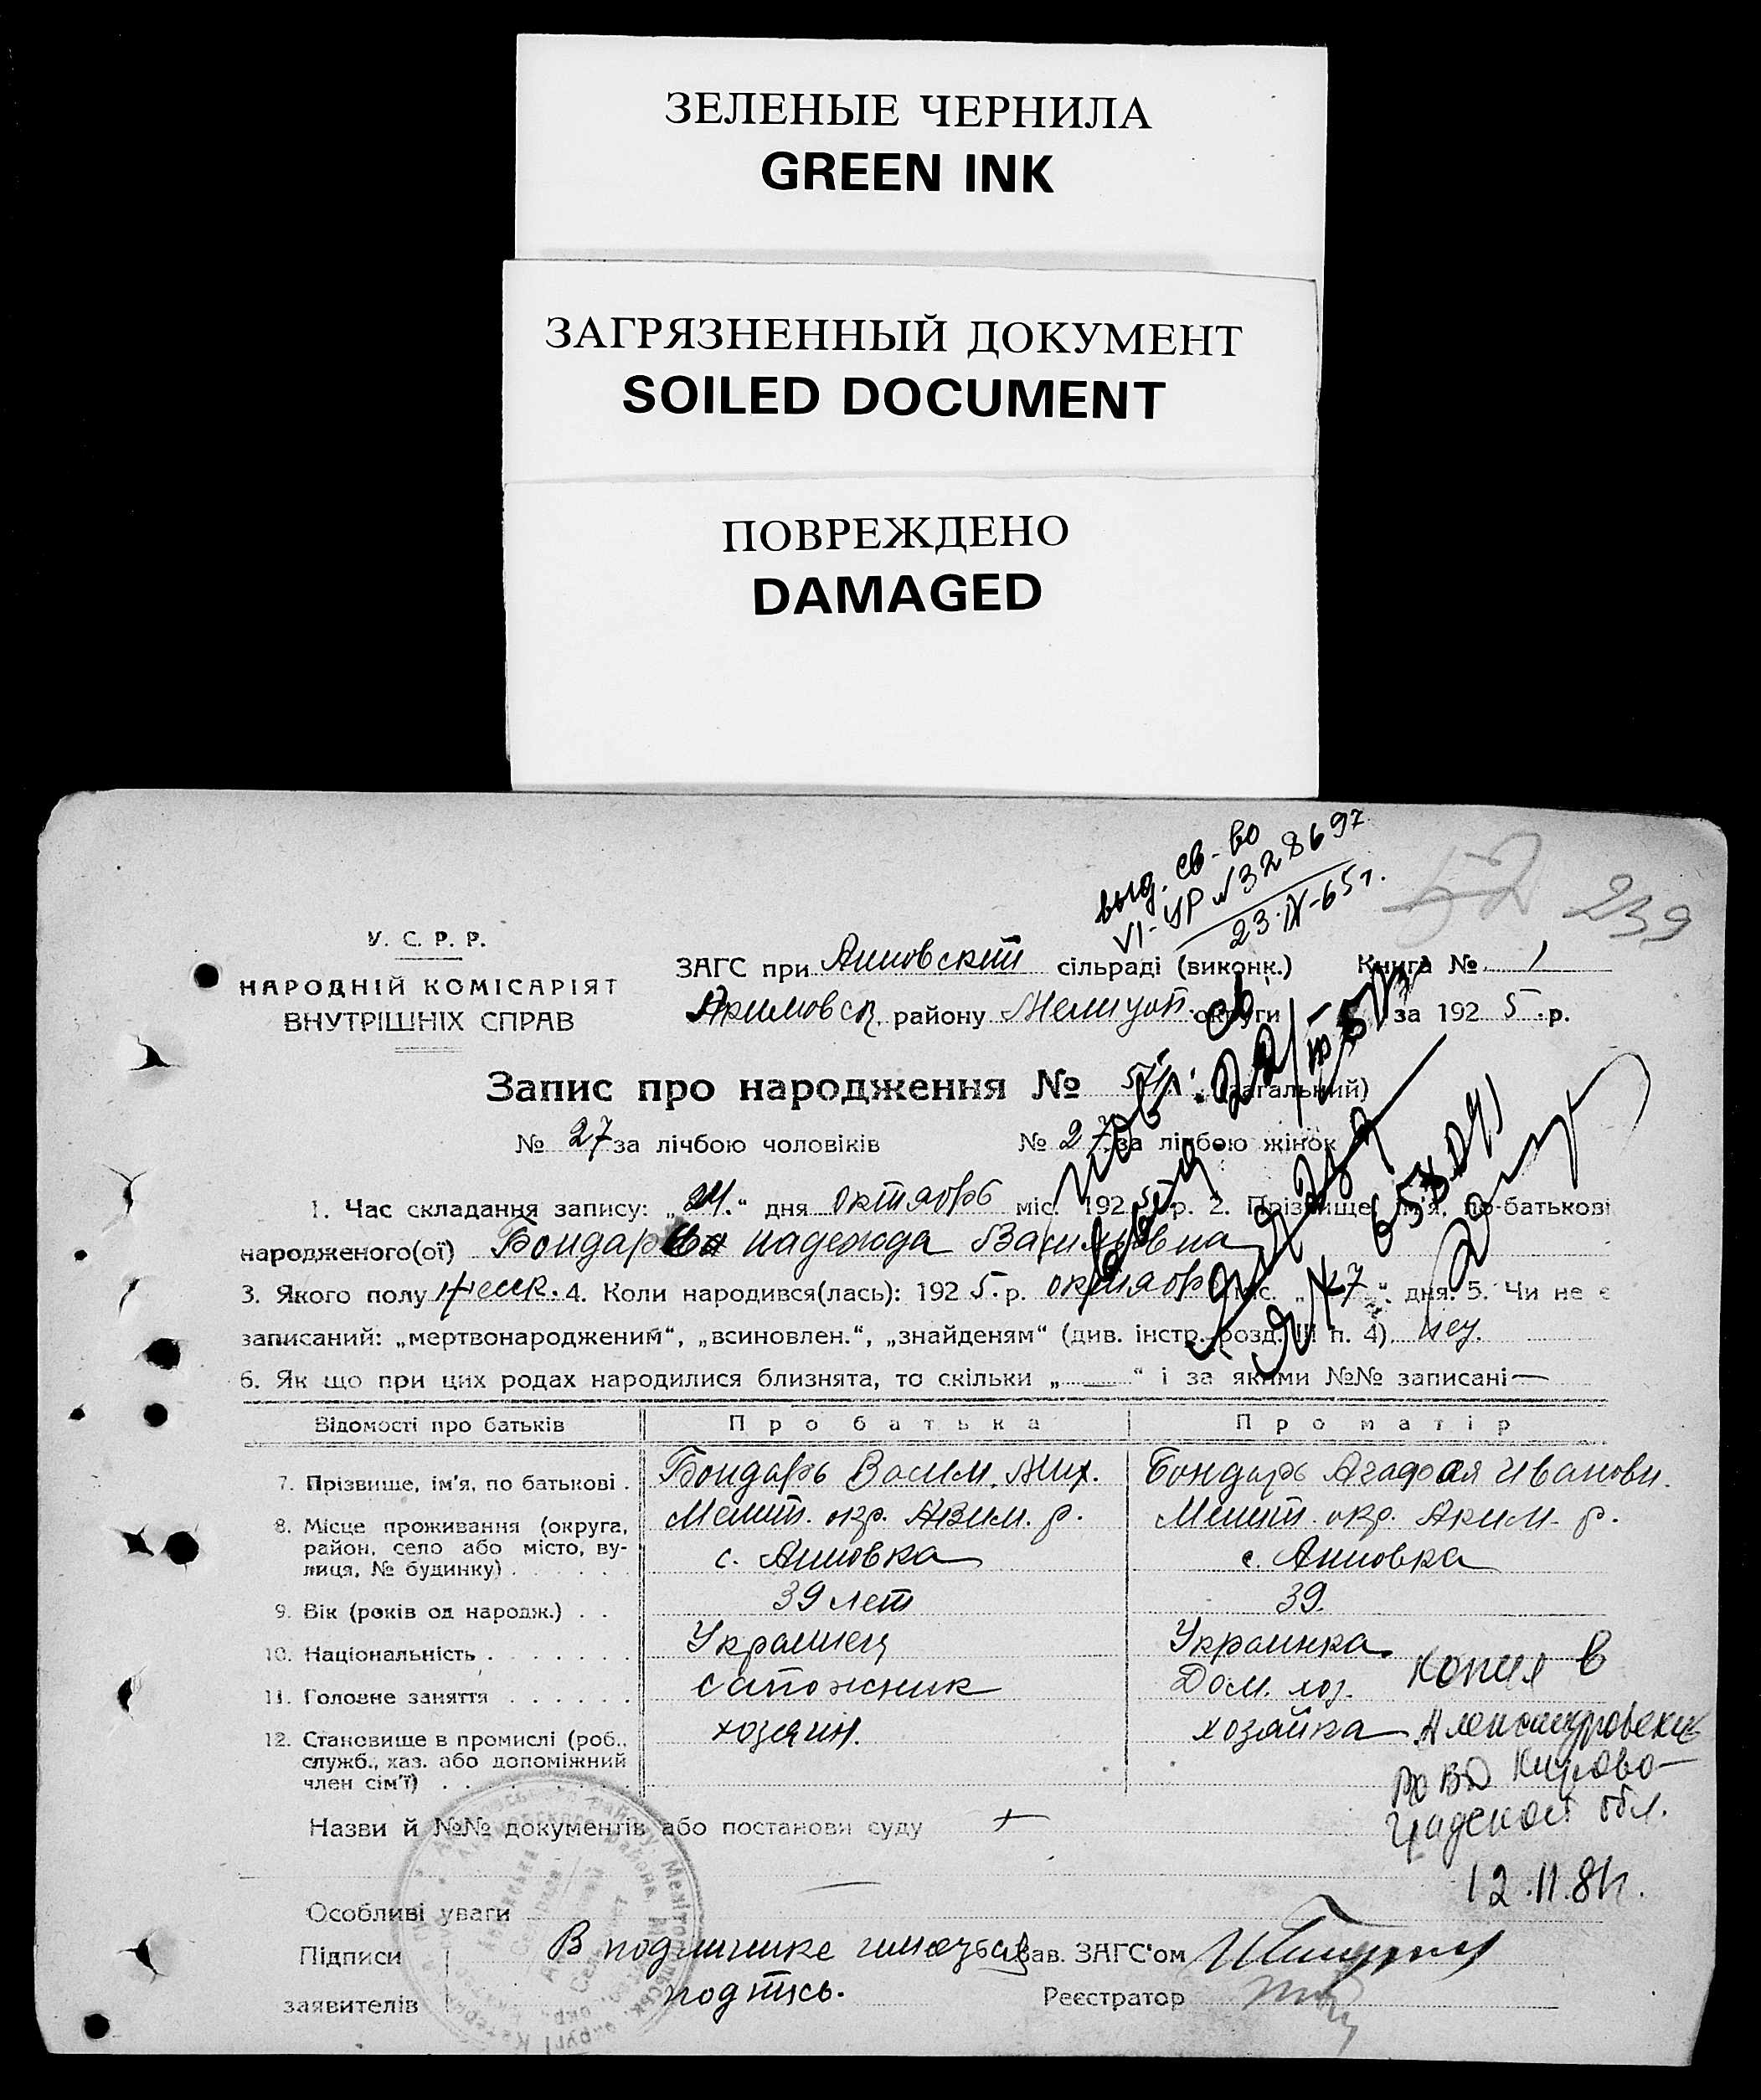 ЗЕЛЕНЫЕ ЧЕРНИЛА
GREEN INK
ЗАГРЯЗНЕННЫЙ ДОКУМЕНТ
SOILED DOCUMENT
ПОВРЕЖДЕНО
DAMAGED
выд. св-во
VI-УР №328697
23·IX-65г.
52 239
У. С. Р. Р.
НАРОДНІЙ КОМІСАРІЯТ
ВНУТРІШНІХ СПРАВ
ЗАГС при Анновский сільраді (виконк.) Книга № 1
Акимовск. району Мелитоп. округи за 1925.р.
Запис про народження № 54 (загальний)
№ 27 за лічбою чоловіків № 27 за лічбою жінок
1. Час складання запису: „24.“ дня октября міс. 1925 р. 2. Прізвище, ім'я, по-батькові
народженого(ої) Бондарь надежда Васильевна
3. Якого полу женск. 4. Коли народився(лась): 1925.р. октября міс. „17“ дня. 5. Чи не є
записаний: „мертвонароджений“, „всиновлен.“, „знайденям“ (див. інстр. розд. III п. 4) нет.
6. Як що при цих родах народилися близнята, то скільки „—“ і за якими №№ записані —
Відомості про батьків Про батька Про матір
7. Прізвище, ім'я, по батькові . Бондарь Васил. Мих. Бондарь Агафия Ивановн.
8. Місце проживання (округа, район, село або місто, вулиця, № будинку) Мелит. окр. Аким. р. Мелит. окр. Аким. р.
с. Анновка с. Анновка
9. Вік (років од народж.) . . 39 лет 39.
10. Національність . Украинец Украинка.
11. Головне заняття Сапожник Дом. хоз.
12. Становище в промислі (роб., служб., хаз. або допоміжний член сім'ї) хозяин. хозяйка
Копия в
Александровский
РОВД Кирово-
градской обл.
12.11.81г.
Назви й №№ документів або постанови суду
Особливі уваги
Підписи В подлинике имеется Зав. ЗАГС'ом
заявителів подпись. Реєстратор